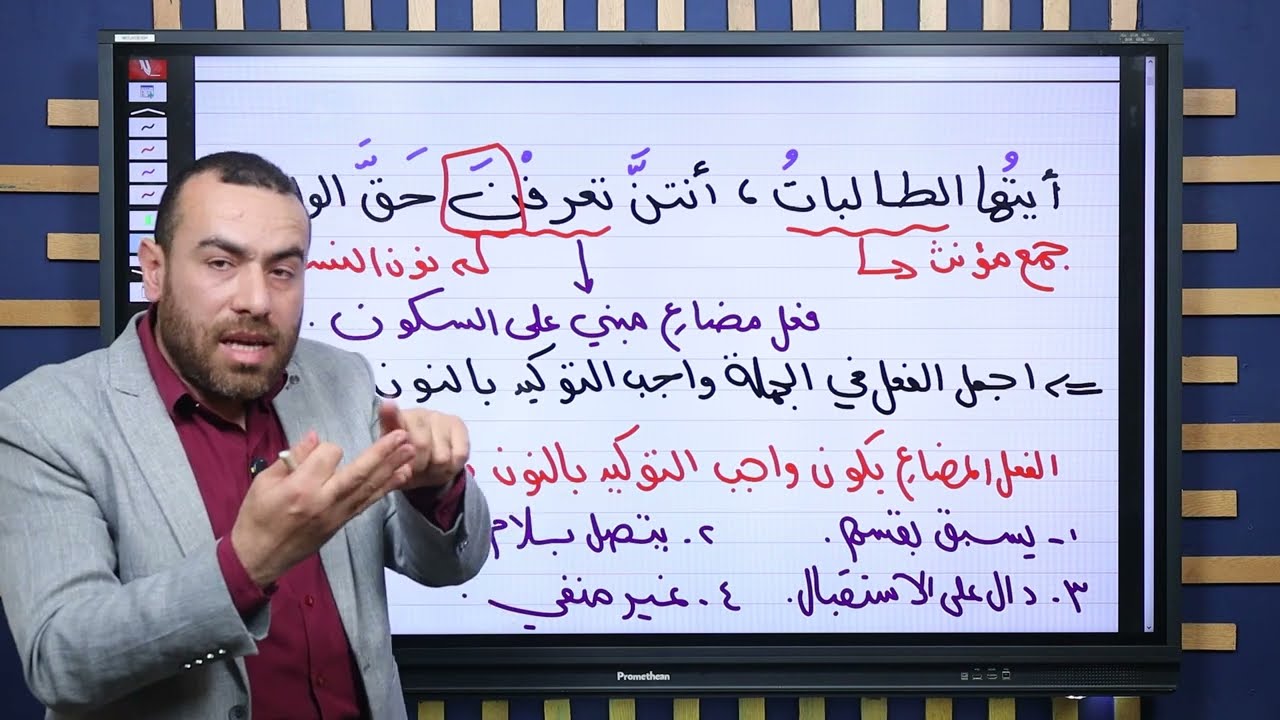 أيتُها الطالباتُ ، أنتنَّ تعرفْنَ حَقَّ
جمع مؤنث
نون
فعل مضارع مبني على السكون .
اجعل الفعل في الجملة واجب التوكيد بالنون
الفعل المضارع يكون واجب التوكيد بالنون
١- يسبق بقسم. ٢. يتصل بلام
٣. دال على الاستقبال. ٤. غير منفي .
Promethean